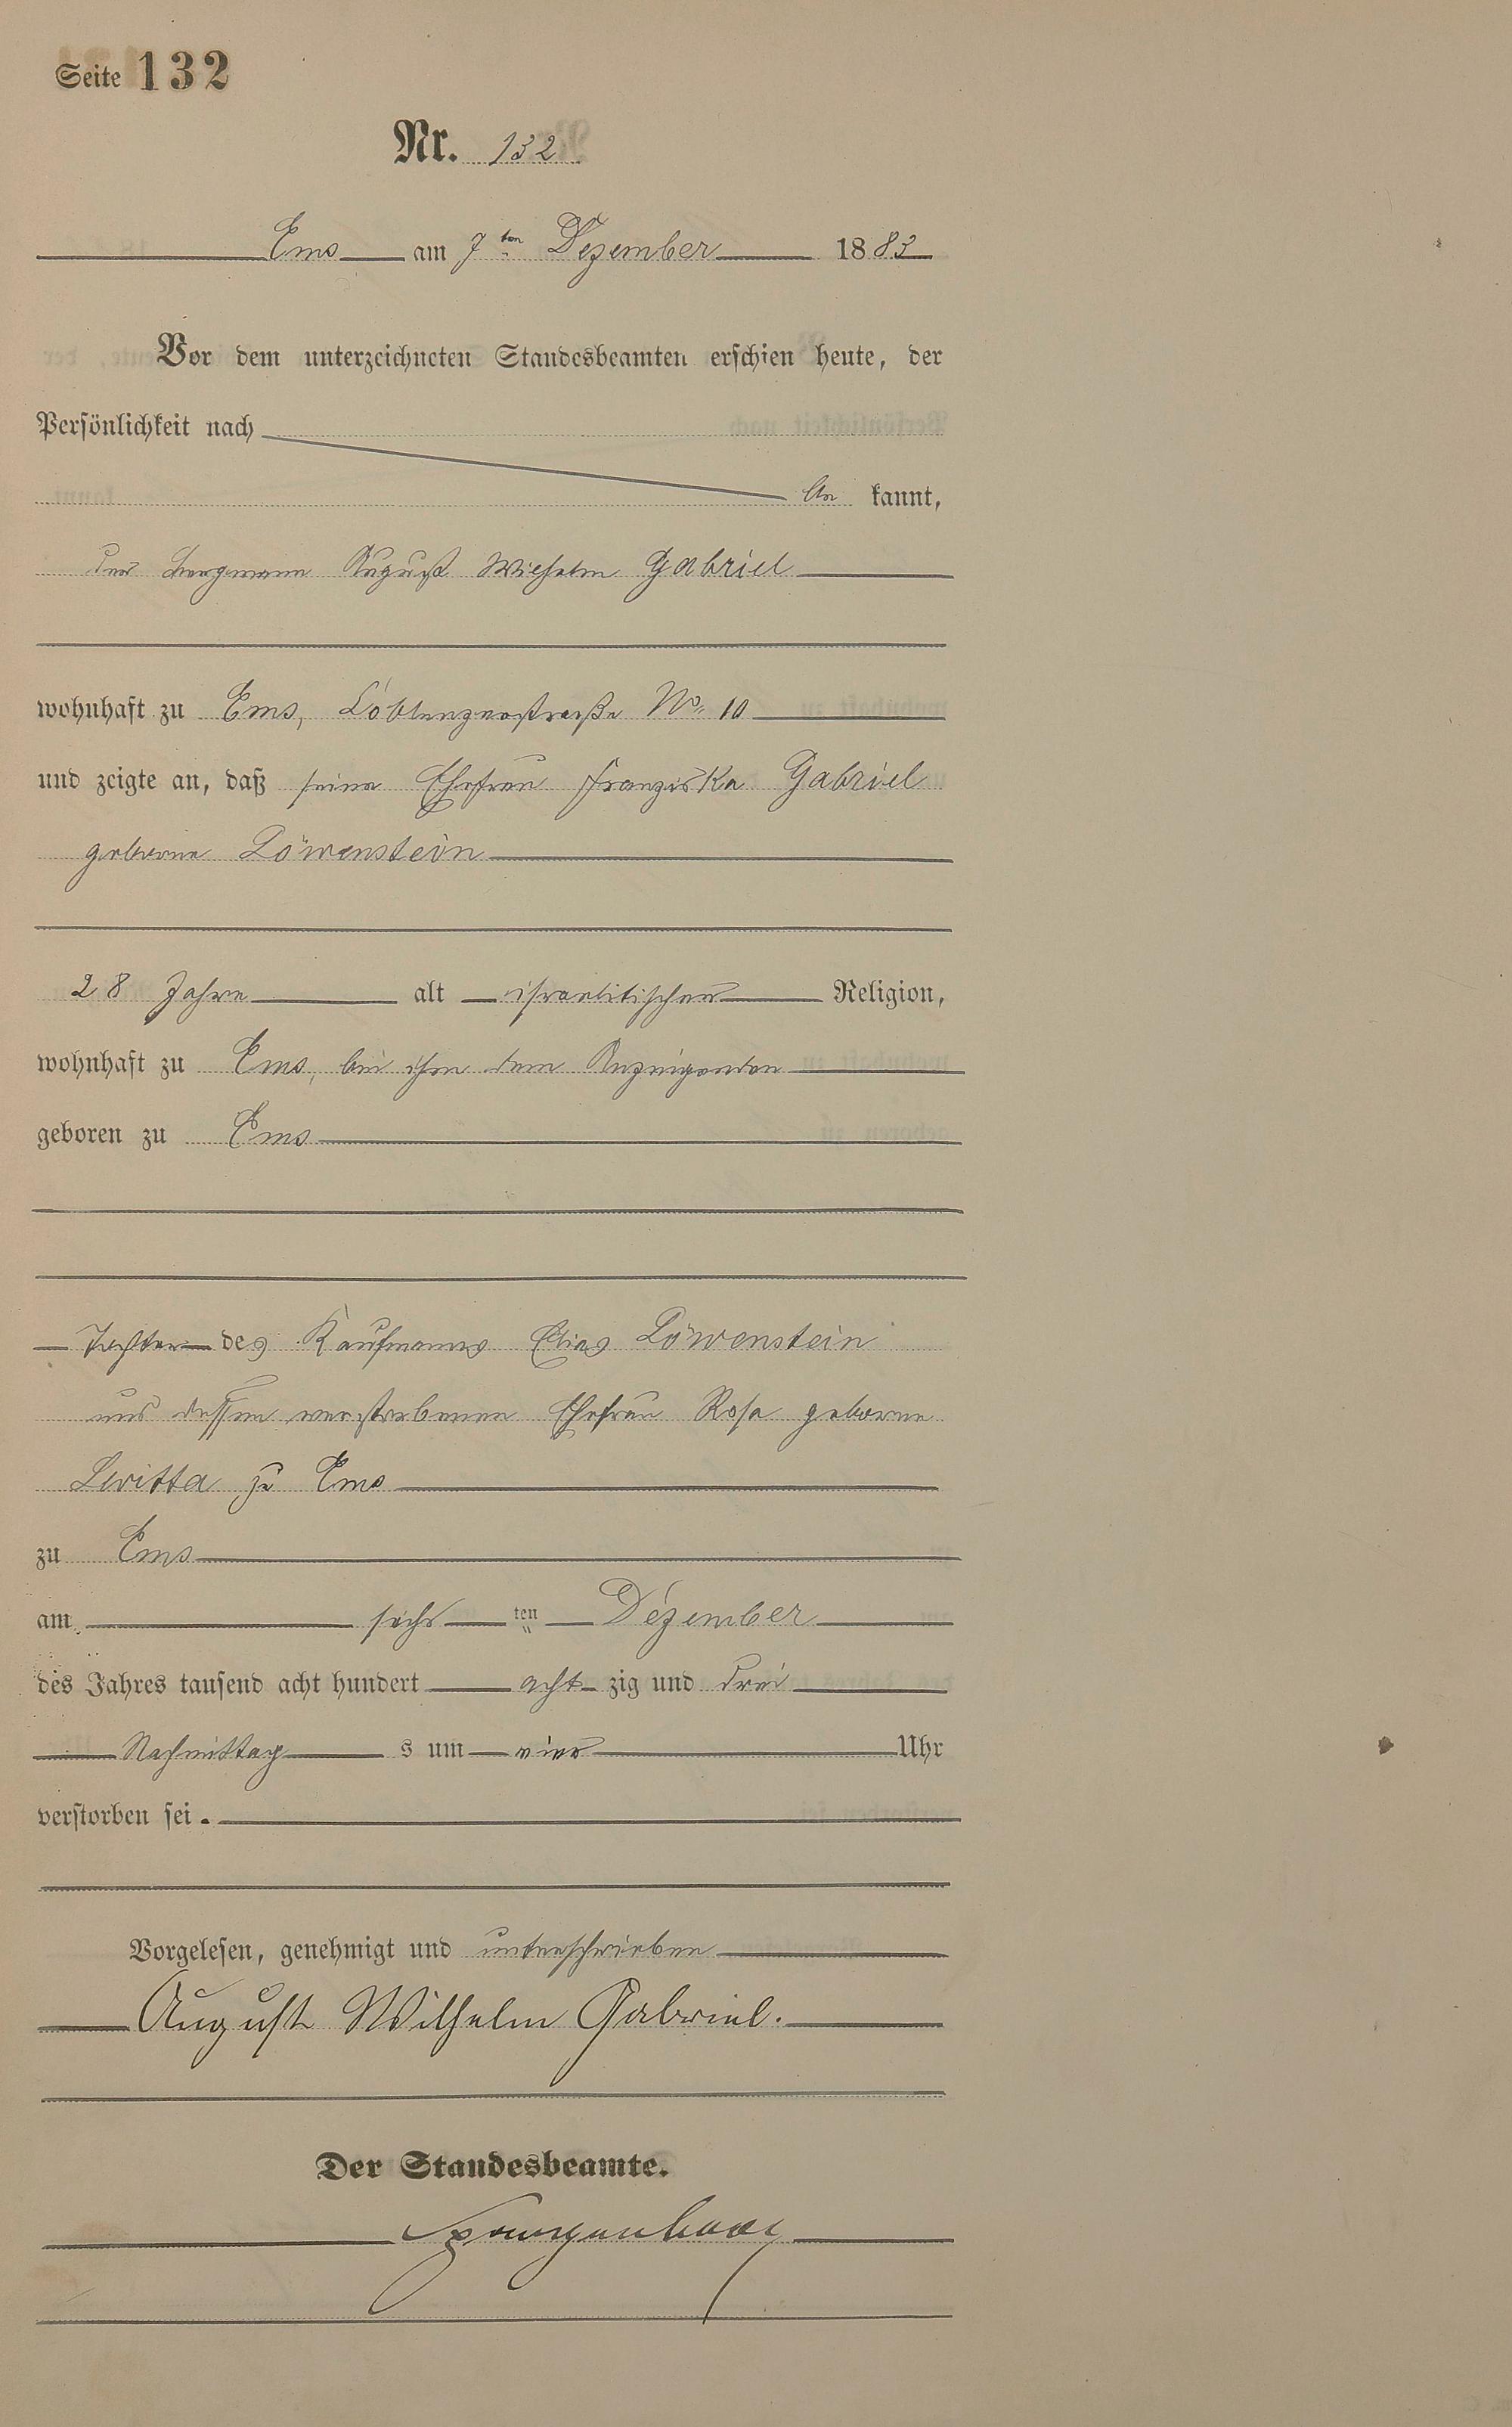 Seite 132
Nr. 132
Ems am 7ten Dezember 1883
Vor dem unterzeichneten Standesbeamten erschien heute, der
Persönlichkeit nach
be kannt,
der Bergmann August Wilhelm Gabriel
wohnhaft zu Ems, Coblenzerstraße No. 10
und zeigte an, daß seine Ehefrau Franziska Gabriel
geborne Löwenstein
28 Jahre alt israelitischer Religion,
wohnhaft zu Ems, bei ihm dem Anzeigenden
geboren zu Ems
Tochter des Kaufmanns Elias Löwenstein
und dessen verstorbenen Ehefrau Rosa geborne
Levitta zu Ems
zu Ems
am sechs ten Dezember
des Jahres tausend acht hundert acht zig und drei
Nachmittag s um vier Uhr
verstorben sei.
Vorgelesen, genehmigt und unterschrieben
August Wilhelm Gabriel.
Der Standesbeamte.